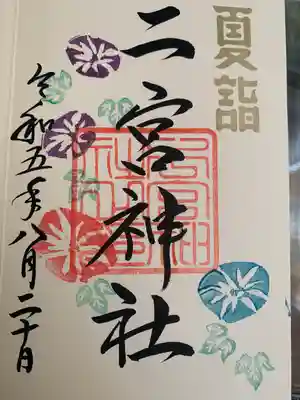 夏詣
二宮神社
令和五年八月二十日